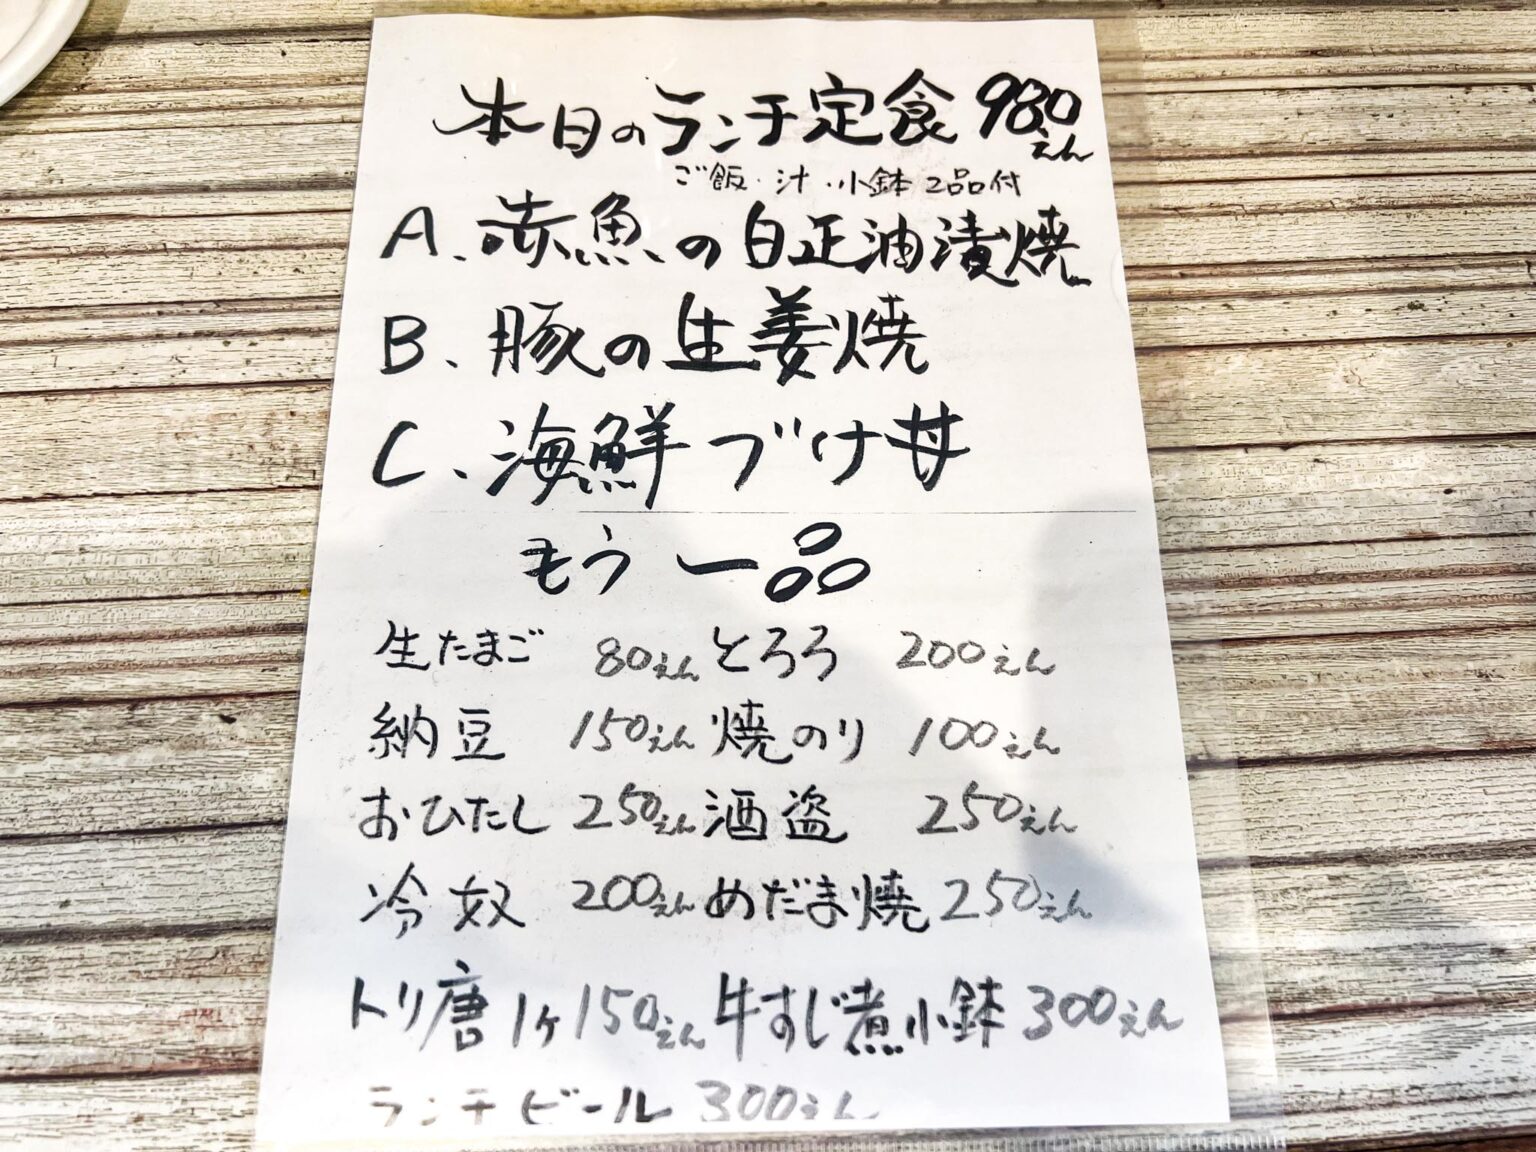 本日のランチ定食 980えん
ご飯・汁・小鉢2品付
A、赤魚の白正油漬焼
B、豚の生姜焼
C、海鮮づけ丼
もう一品
生たまご 80えん とろろ 200えん
納豆 150えん 焼のり 100えん
おひたし 250えん 酒盗 250えん
冷奴 200えん めだま焼 250えん
トリ唐1ケ 150えん 牛すじ煮小鉢 300えん
ランチビール 300えん